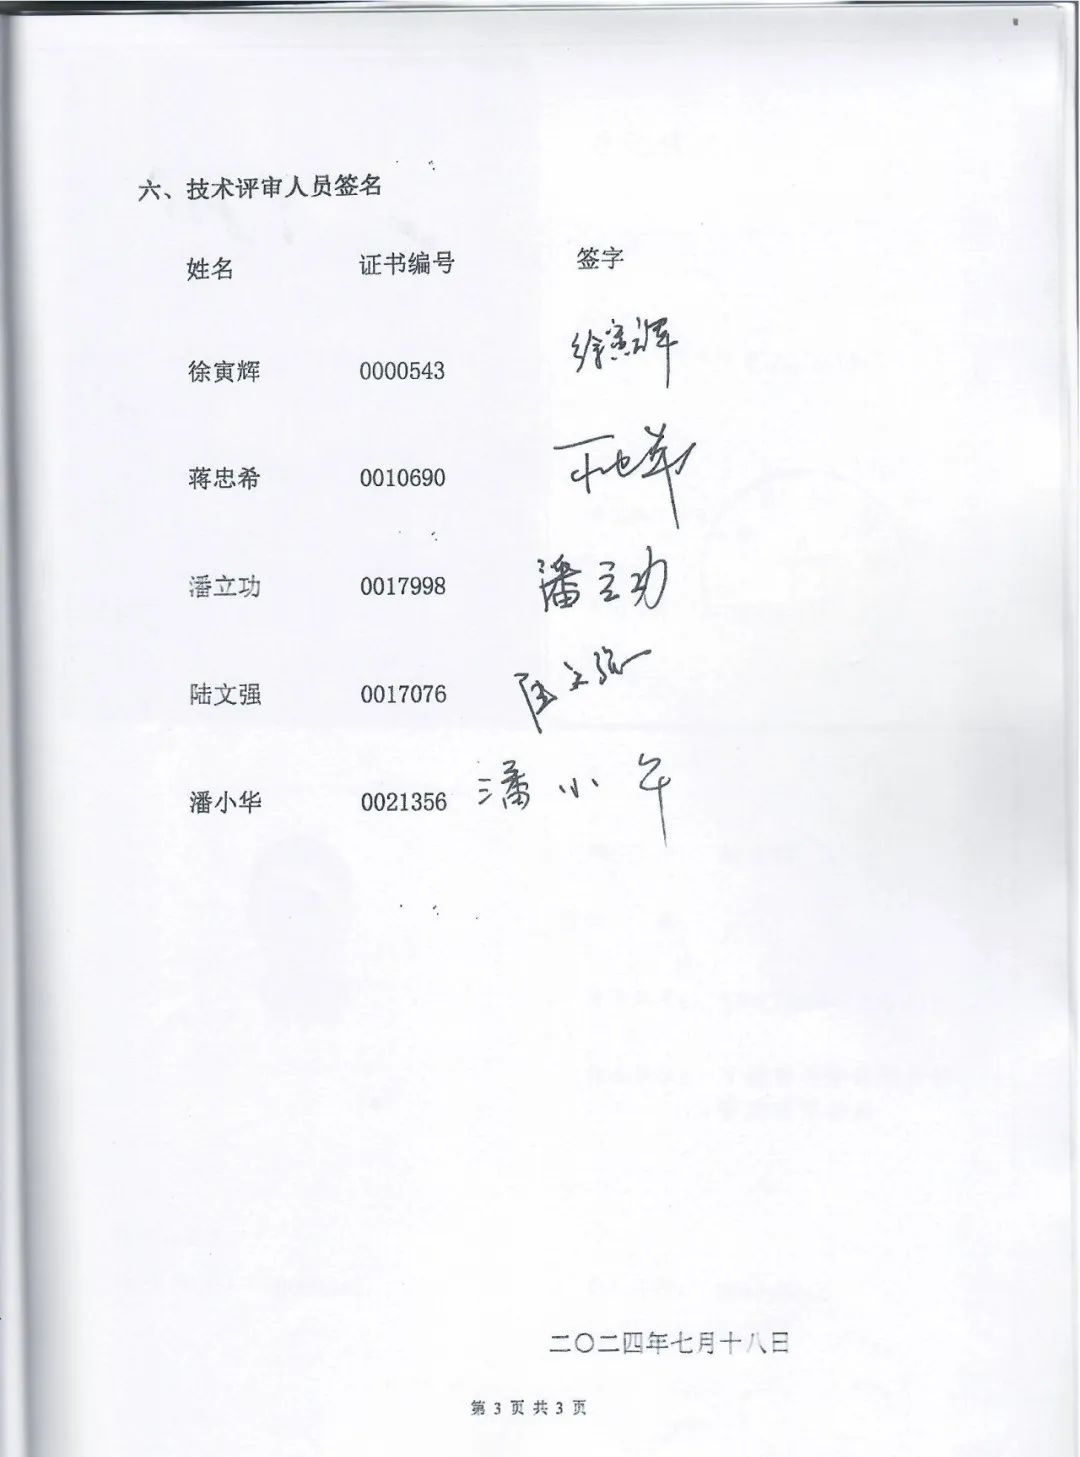 六、技术评审人员签名
姓名 证书编号 签字
徐寅辉 0000543 徐寅辉
蒋忠希 0010690
潘立功 0017998 潘立功
陆文强 0017076 陆文强
潘小华 0021356 潘小华
二〇二四年七月十八日
第 3 页 共 3 页